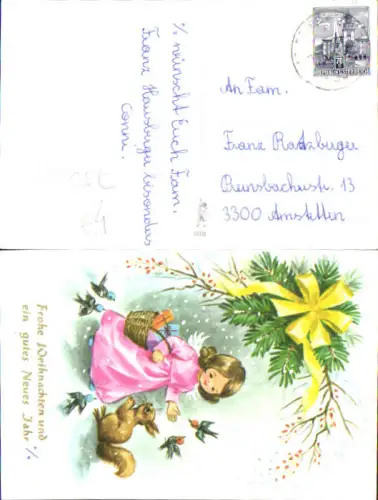 % wünscht Euch Fam.
Franz Hausburger besonders
Conni.
An Fam.
Franz Ratzburger
Preinsbacherstr. 13
3300 Amstetten
Frohe Weihnachten und
ein gutes Neues Jahr %